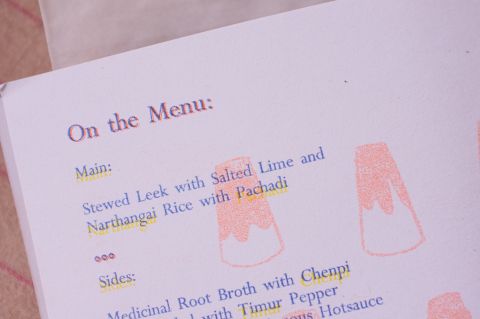 On the Menu:
Main:
Stewed Leek with Salted Lime and
Narthangai Rice with Pachadi
Sides:
Medicinal Root Broth with Chenpi
with Timur Pepper
Hotsauce